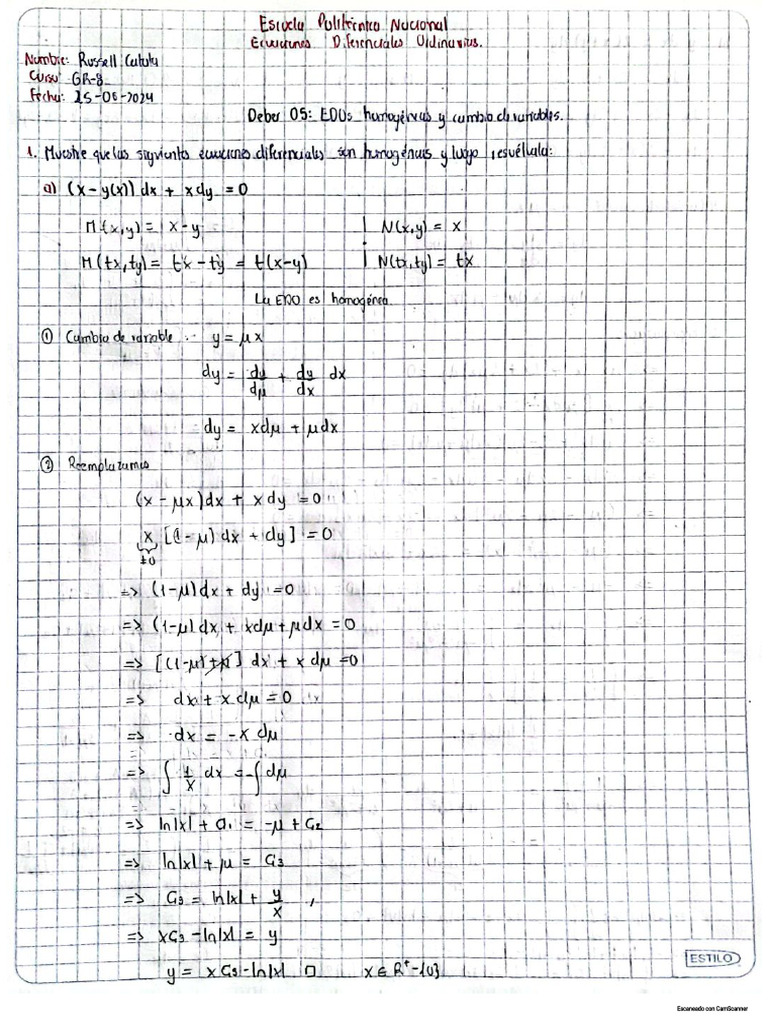 Escuela Politécnica Nacional
Ecuaciones Diferenciales Ordinarias.
Nombre: Russell
Curso: GR-8
Fecha: 25-06-2024
Deber 05: EDOs homogéneas y cambio de variables.
1. Muestre que las siguientes ecuaciones diferenciales son homogéneas y luego resuélvala:
a) (x - y(x)) dx + x dy = 0
M(x,y) = x - y | N(x,y) = x
M(tx,ty) = tx - ty = t(x-y) | N(tx,ty) = tx
La EDO es homogénea.
① Cambio de variable: y = μx
dy = dy/dμ + dy/dx dx
dy = xdμ + μdx
② Reemplazamos
(x - μx)dx + x dy = 0
x [(1-μ) dx + dy] = 0
≠0
=> (1-μ)dx + dy = 0
=> (1-μ) dx + xdμ + μdx = 0
=> [(1-μ)+μ] dx + x dμ = 0
=> dx + x dμ = 0
=> dx = -x dμ
=> ∫ 1/x dx = -∫ dμ
=> ln|x| + C1 = -μ + C2
=> ln|x| + μ = C3
=> C3 = ln|x| + y/x ,
=> xC3 - ln|x| = y
y = xC3 - ln|x| □ x ∈ R⁺-{0}
ESTILO
Escaneado con CamScanner